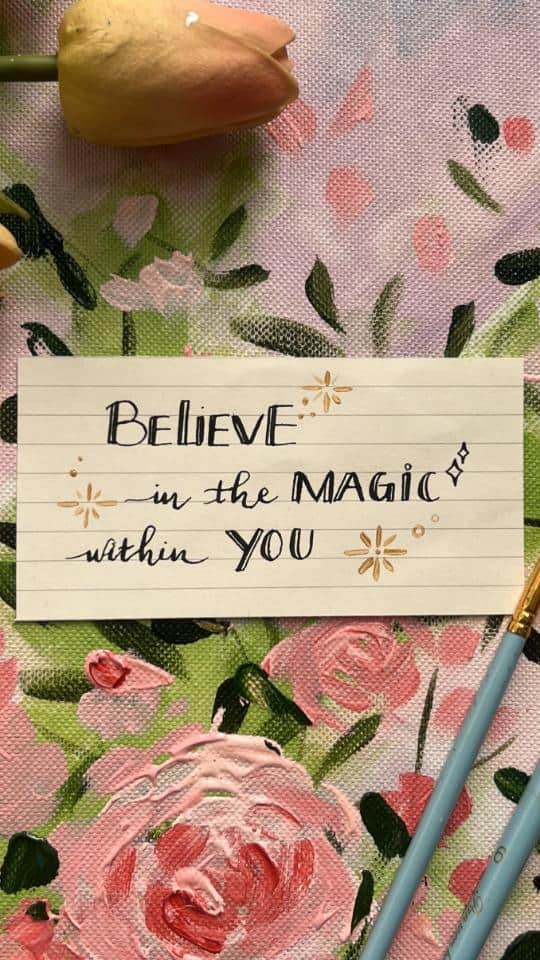 BELiEVE
in the MAGiC
within YOU
6